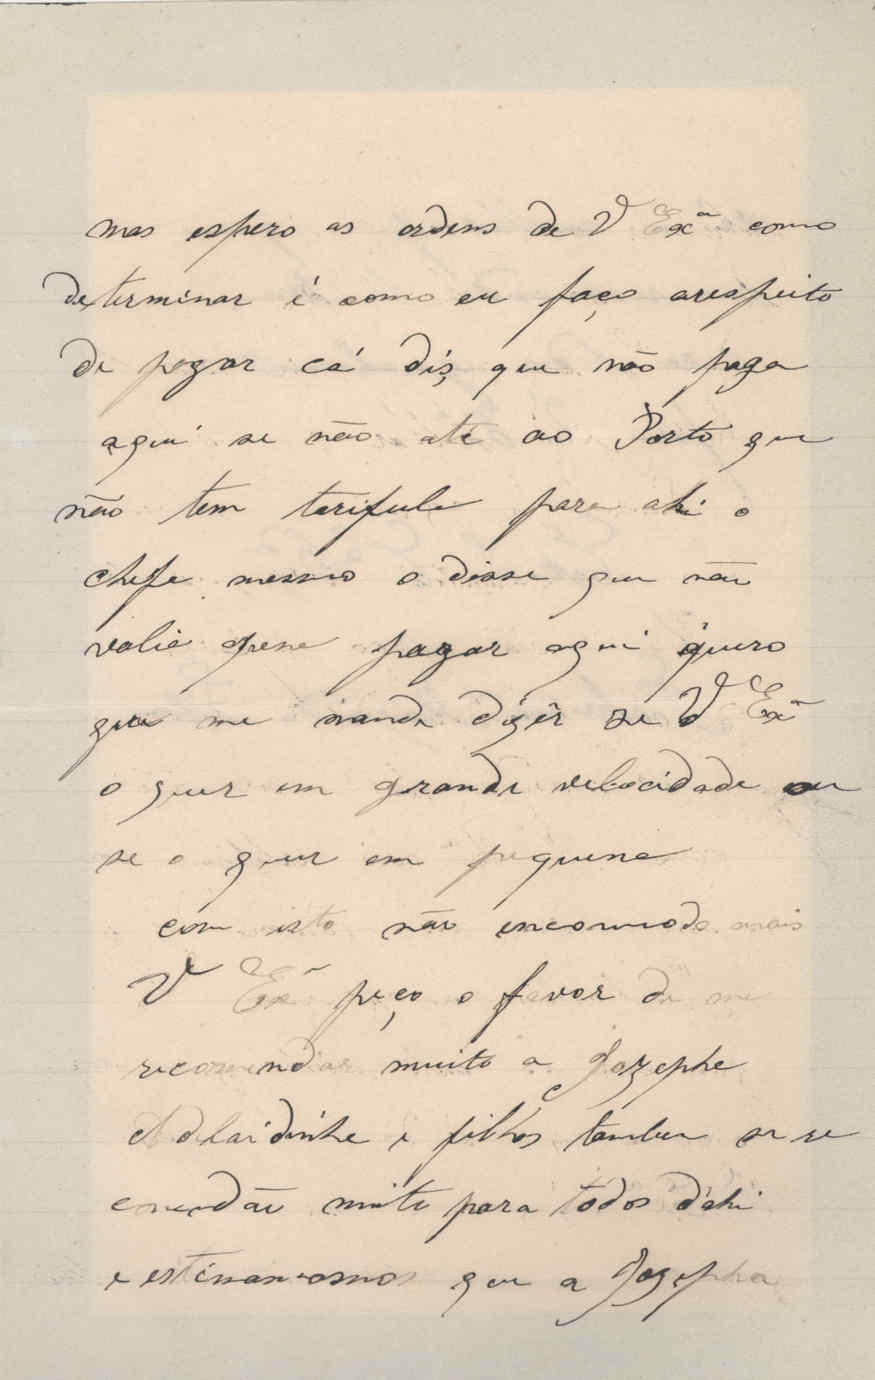 mas espero as ordens de V Exª como
determinar é como eu faço arespeito
de pagar cá dis que não paga
aqui se não até ao Porto que
não tem tarifula para ahi o
chefe mesmo o disse que não
valia apena pagar aqui quero
que me mande dizêr se V Exª
o quer em grande velocidade ou
se o quer em pequena
com isto não encomodo mais
V Exª peço o favor de me
recomendar muito a Jozepha
Adelaidinha e filhos tambem
muito para todos d'ahi
e estimamos que a Jozepha